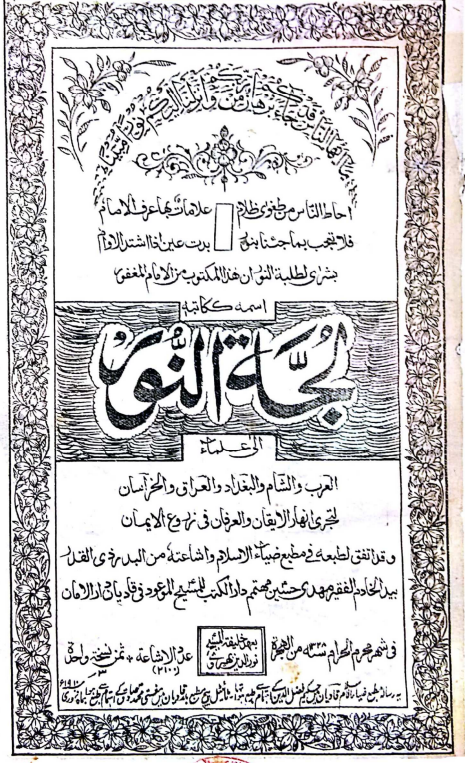 يا ايها الناس قد جاءكم برهان من ربكم وانزلنا اليكم نورا مبينا
احاط الناس من طغوى ظلام علامات بها عرف الامام
فلا تعجب بما جئنا بنور بدت عين اذا اشتد الاوام
بشرى لطلبة النور ان هذا المكتوب من الامام المغفور
اسمه ككاتبه
لُجَّةُ النُّور
الى علماء
العرب والشام والبغداد والعراق والخراسان
لتجرى انهار الايقان والعرفان فى زروع الايمان
وقد اتفق لطبعه فى مطبع ضياء الاسلام واشاعته من البدر ذى القدر
بيد الخادم الفقير مهدى حسين مهتمم دار الكتب للمسيح الموعود فى قاديان دار الامان
فى شهر محرم الحرام سنه ١٣٢٨ من الهجرة
بعهد خليفة المسيح
نور الدين
عدة الاشاعة + ثمن نسخة واحدة
(٢١٠٠)